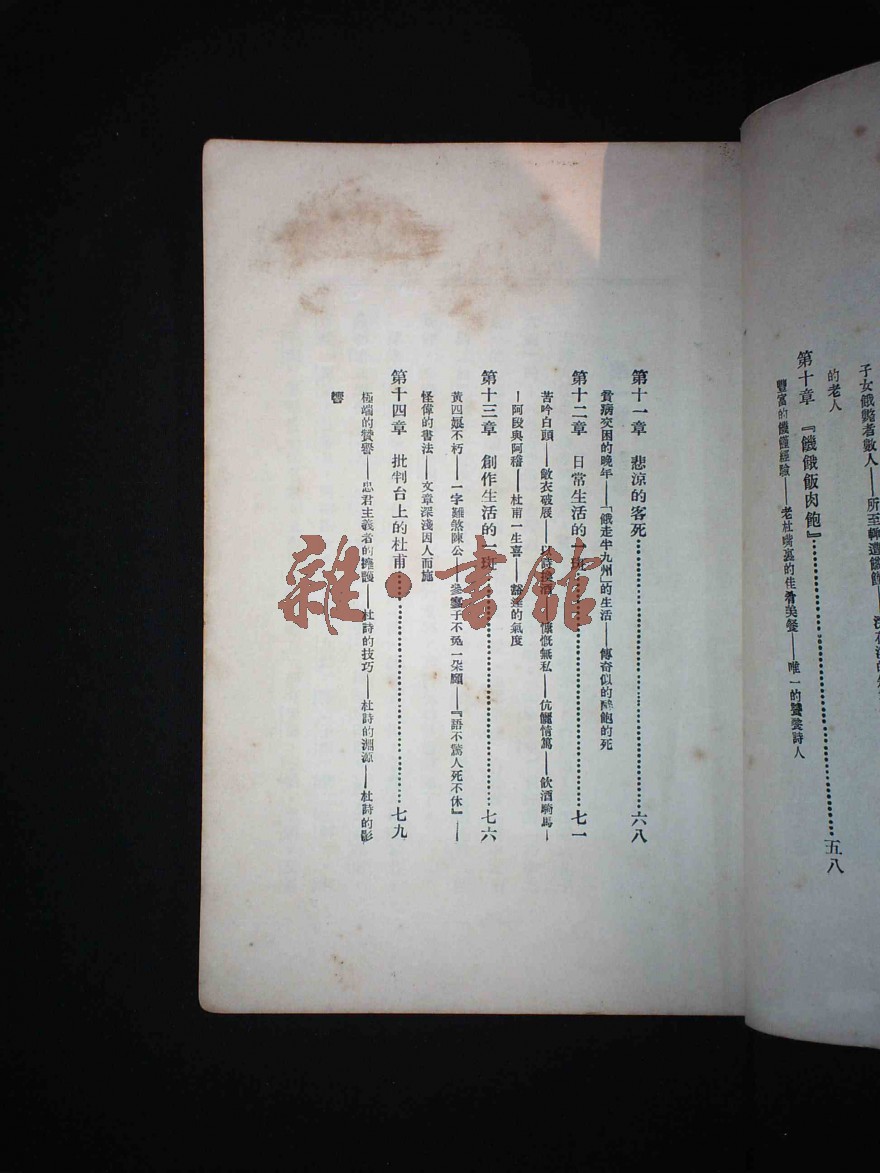 子女餓斃者數人——所至輒遭饑饉——
的老人
第十章　『饑餓飯肉飽』………五八
豐富的饑饉經驗——老杜嘴裏的佳肴美餐——唯一的　詩人
第十一章　悲涼的客死………六八
貧病交困的晚年——「餓走半九州」的生活——傳奇似的醉飽的死
第十二章　日常生活的一斑………七一
苦吟白頭——敝衣破屐——以詩換酒——慷慨無私——伉儷情篤——飲酒騎馬—
—阿段與阿稽——杜甫一生喜——豁達的氣度
第十三章　創作生活的一斑………七六
黃四娘不朽——一字難煞陳公——　子不免一朵頤——『語不驚人死不休』——
怪偉的書法——文章深淺因人而施
第十四章　批判台上的杜甫………七九
極端的贊譽——忠君主義者的擁護——杜詩的技巧——杜詩的淵源——杜詩的影
響
雜·書館